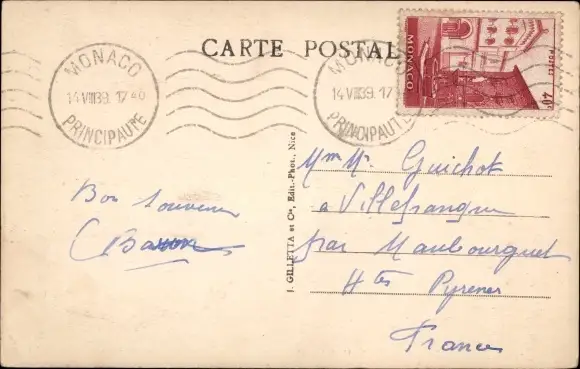 CARTE POSTALE
MONACO
14 VIII 39. 17
PRINCIPAUTE
MONACO
14 VIII 39. 17
PRINCIPAUTE
MONACO
POSTES
40c
Bon Souvenir
J. GILLETTA et Cie, Edit.-Phot., Nice
Mme Mr. Guichot
a Villefranque
par Maubourguet
Htes Pyrenees
France